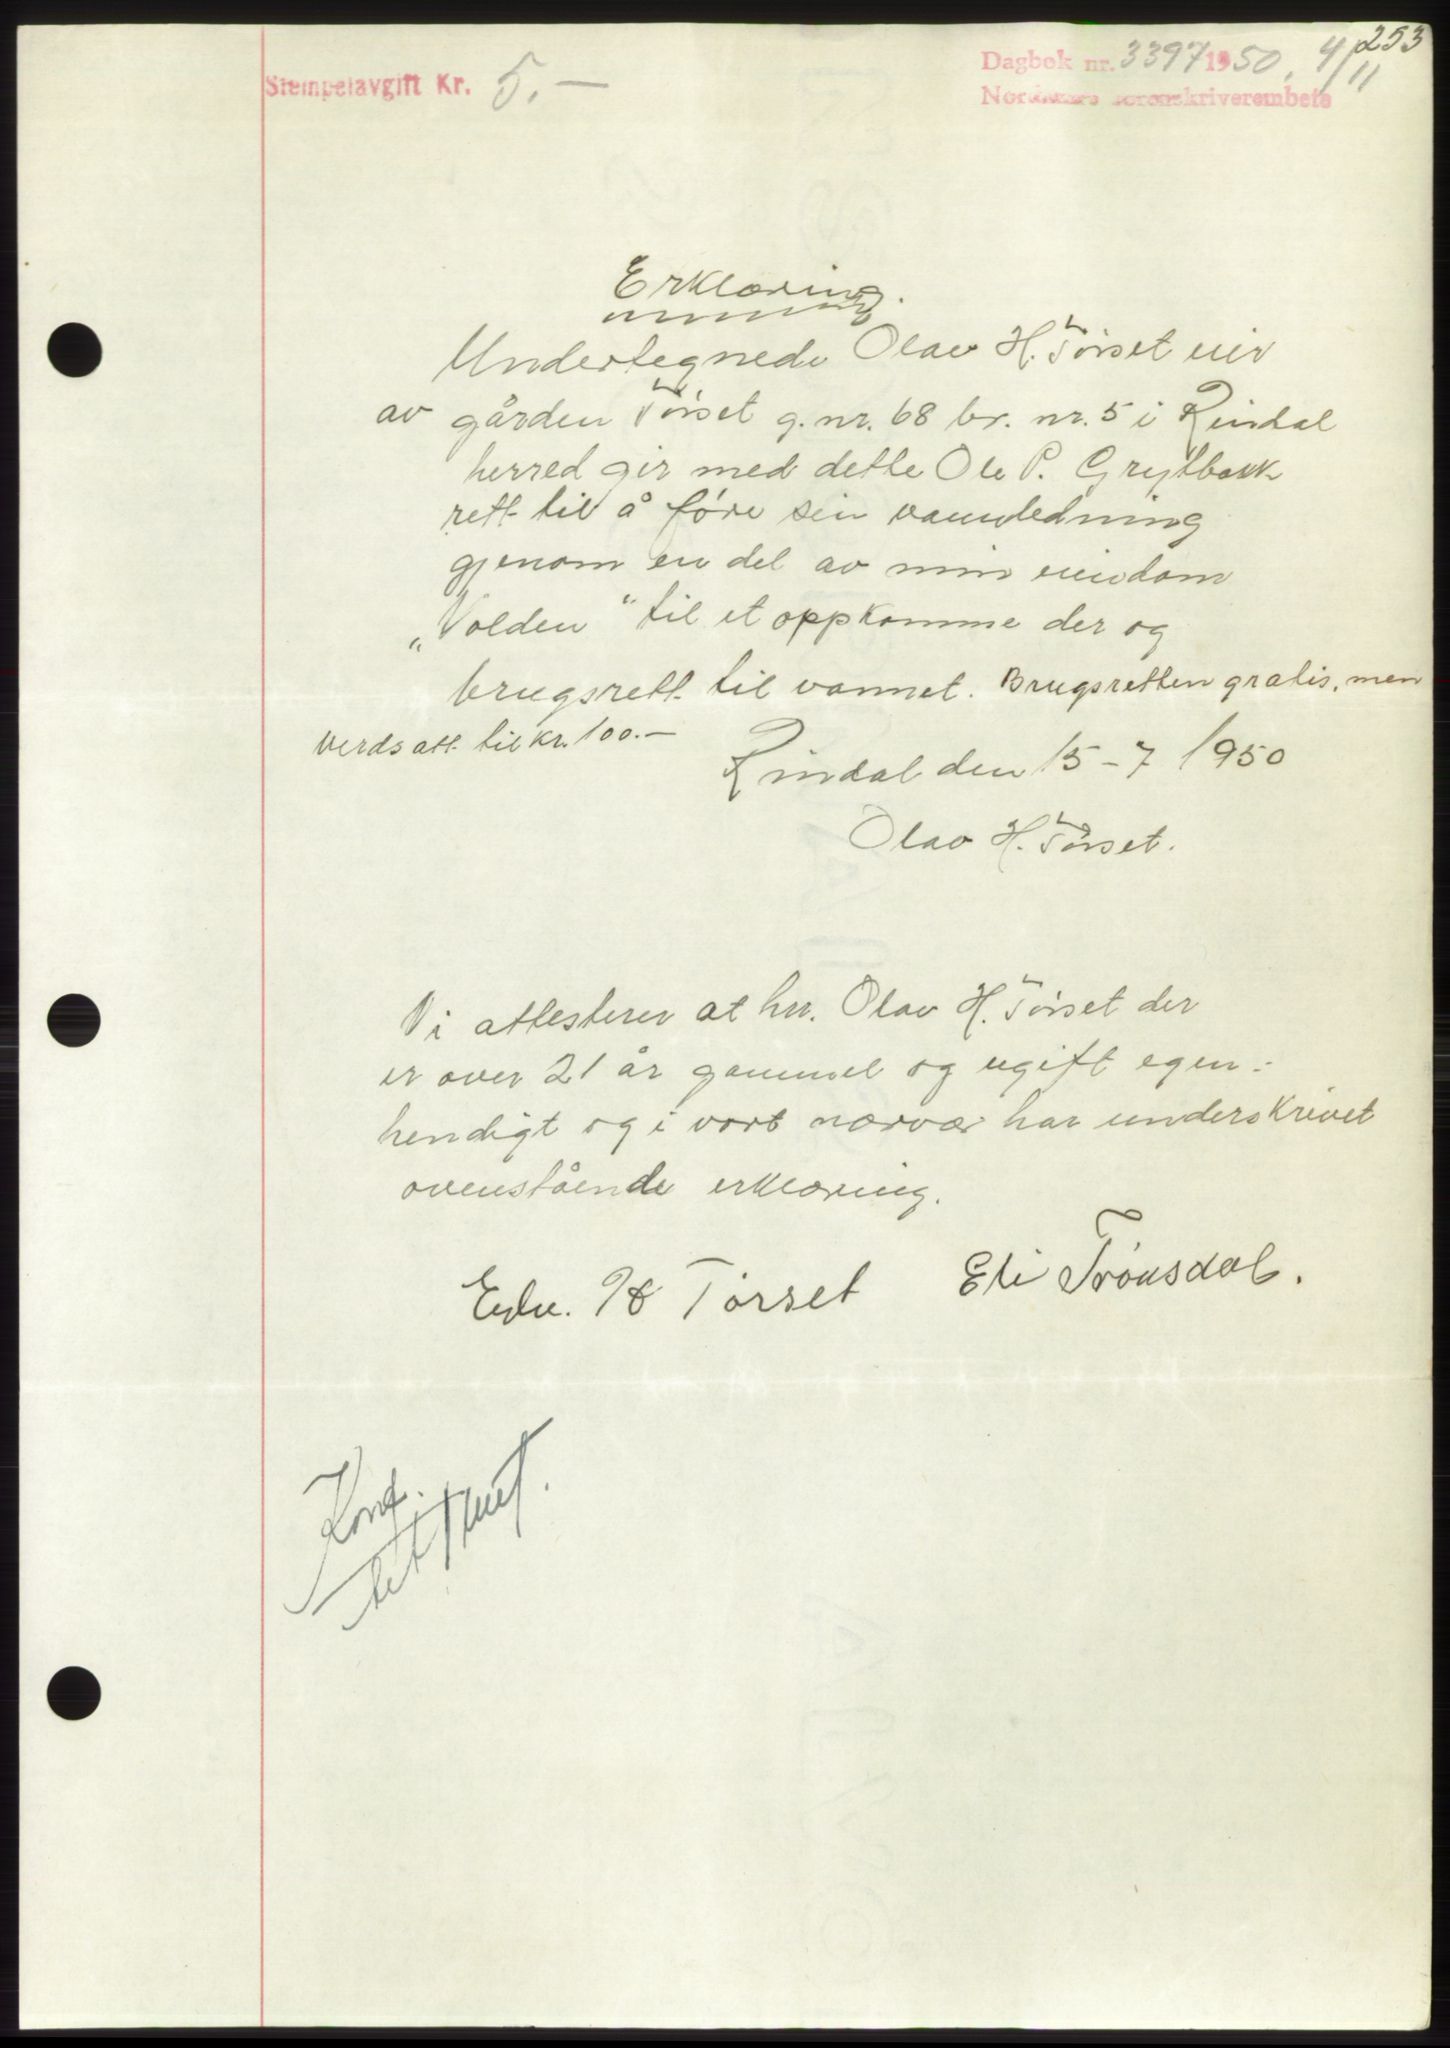 253
Stempelavgift Kr. 5.-
Dagbok nr. 3397 1950, 4/11
Nordmøre sorenskriverembete
Erklæring.
Undertegnede Olav H. Tørset eier
av gården Tørset g. nr. 68 br. nr. 5 i Rindal
herred gir med dette Ole P. Grytbakk
rett til å føre sin vannledning
gjenom en del av min eiendom
„Volden“ til et oppkomme der og
brugsrett til vannet. Brugsretten gratis, men
verdsatt til kr. 100.-
Rindal den 15-7 1950
Olav H. Tørset.
Vi attesterer at hrr. Olav H. Tørset der
er over 21 år gammel og ugift egen-
hendigt og i vort nærvær har underskrivet
ovenstående erklæring.
Edv. H Tørset Eli Trønsdal.
Konf.